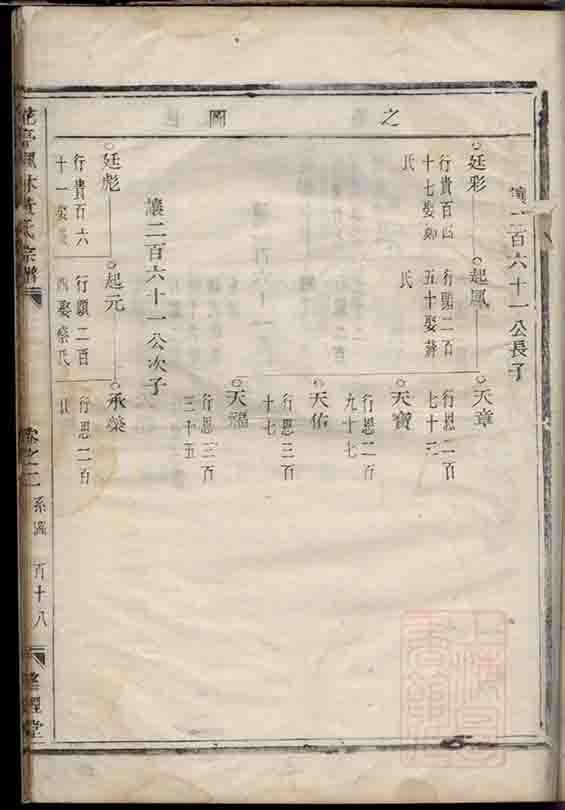 之圖
讓二百六十一公長子
廷彩
行貴百四
十七娶鄭
氏
起鳳
行顯二百
五十娶
氏
天章
行恩二百
七十
天寶
行恩二百
九十七
天佑
行恩三百
十七
天福
行恩三百
三十五
讓二百六十一公次子
廷彪
行貴百六
十一娶
起元
行顯二百
四娶蔡氏
承榮
行恩二百
氏宗譜
卷之二
系圖
百十八
堂
上海